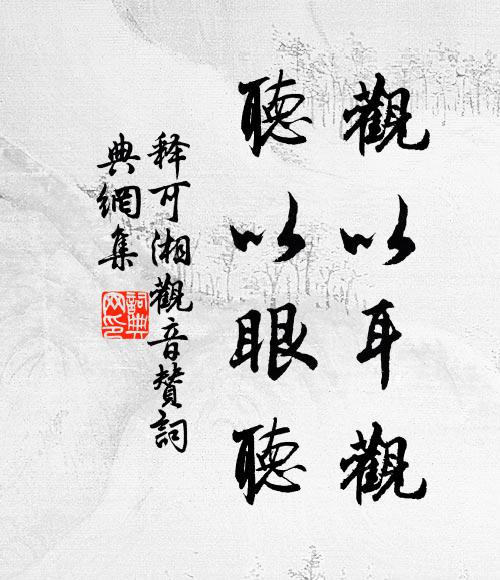 觀以耳觀
聽以眼聽
释可湘觀音贊詞
典網集
詞典网印